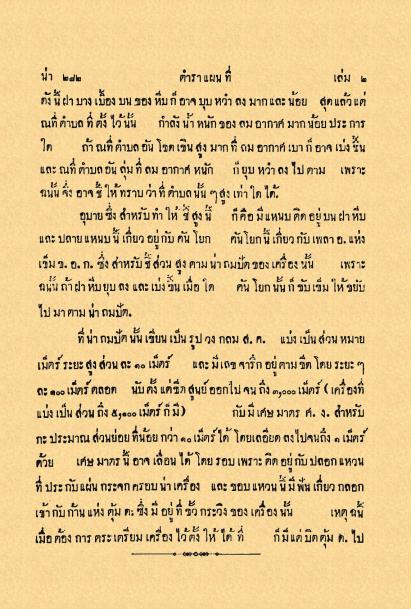 น่า ๒๘๒ ตำราแผนที่ เล่ม ๒
ดังนี้ฝาบางเบื้องบนของหีบก็อาจบุบหวำลงมากและน้อย สุดแล้วแต่
ณที่ตำบลที่ตั้งไว้นั้น กำลังน้ำหนักของลมอากาศมากน้อยประการ
ใด ถ้าณที่ตำบลอันโขดเขินสูงมากที่ลมอากาศเบาก็อาจเบ่งขึ้น
และณที่ตำบลอันลุ่มที่ลมอากาศหนัก ก็ยุบหวำลงไปตาม เพราะ
ฉนั้นจึ่งอาจชี้ให้ทราบว่าที่ตำบลนั้นๆสูงเท่าใดได้
อุบายซึ่งสำหรับทำให้ชี้สูงนี้ ก็คือมีแหนบติดอยู่บนฝาหีบ
และปลายแหนบนี้เกี่ยวอยู่กับคันโยก คันโยกนี้เกี่ยวกับเพลา อ. แห่ง
เข็ม ข. อ. ก. ซึ่งสำหรับชี้ส่วนสูงตามน่าถมปัดของเครื่องนั้น เพราะ
ฉนั้นถ้าฝาหีบยุบลงและเบ่งขึ้นเมื่อใด คันโยกนั้นก็ขับเข็มให้ขยับ
ไปมาตามน่าถมปัด.
ที่น่าถมปัดนั้นเขียนเป็นรูปวงกลม ส. ด. แบ่งเป็นส่วนหมาย
เม็ตร์ระยะสูงส่วนละ ๑๐ เม็ตร์ และมีเลขจาฤกอยู่ตามขีดโดยระยะๆ
ละ ๑๐๐ เม็ตร์ตลอด นับตั้งแต่ขีดสูนย์ออกไปจนถึง ๓,๐๐๐ เม็ตร์ (เครื่องที่
แบ่งเป็นส่วนถึง ๕,๐๐๐ เม็ตร์ก็มี) กับมีเศษมาตร ศ. ง. สำหรับ
กะประมาณส่วนย่อยที่น้อยกว่า ๑๐ เม็ตร์ได้ โดยเลอียดลงไปจนถึง ๑ เม็ตร์
ด้วย เศษมาตรนี้อาจเลื่อนได้โดยรอบเพราะติดอยู่กับปลอกแหวน
ที่ประกับแผ่นกระจกครอบน่าเครื่อง และขอบแหวนนี้มีฟันเกี่ยวกลอก
เข้ากับก้านแห่งตุ้ม ต: ซึ่งมีอยู่ที่ขั้วกระวิงของเครื่องนั้น เหตุฉนี้
เมื่อต้องการตระเตรียมเครื่องไว้ตั้งให้ได้ที่ ก็มีแต่บิดตุ้ม ต. ไป